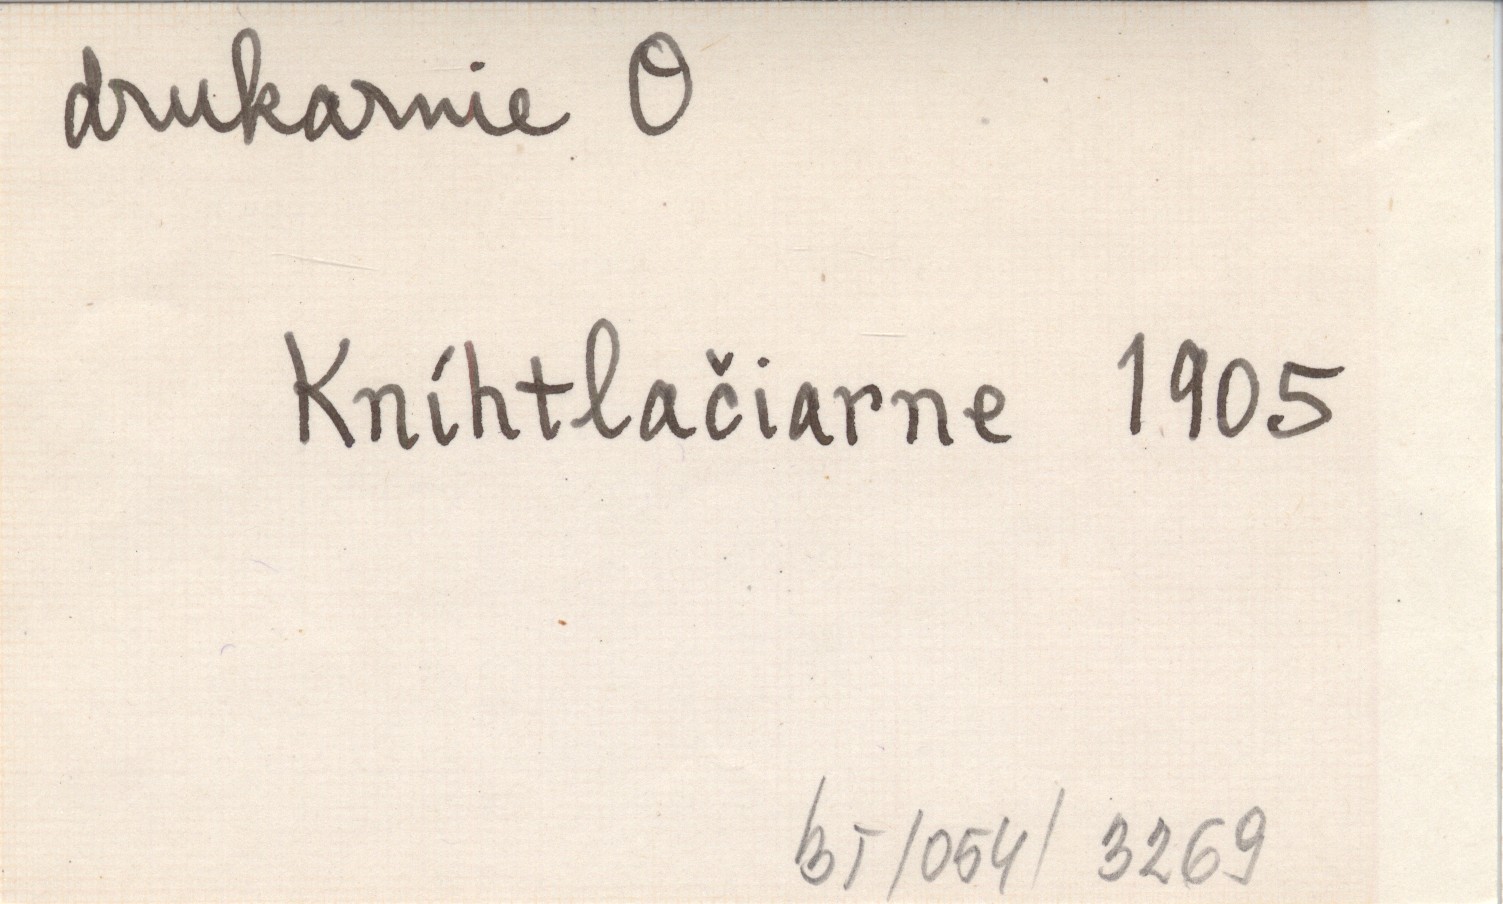 drukarnie O
Kníhtlačiarne 1905
BT/054/ 3269